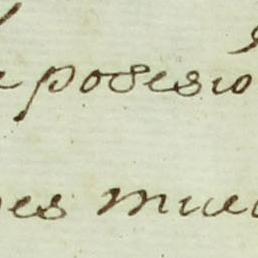 posesió
es mue